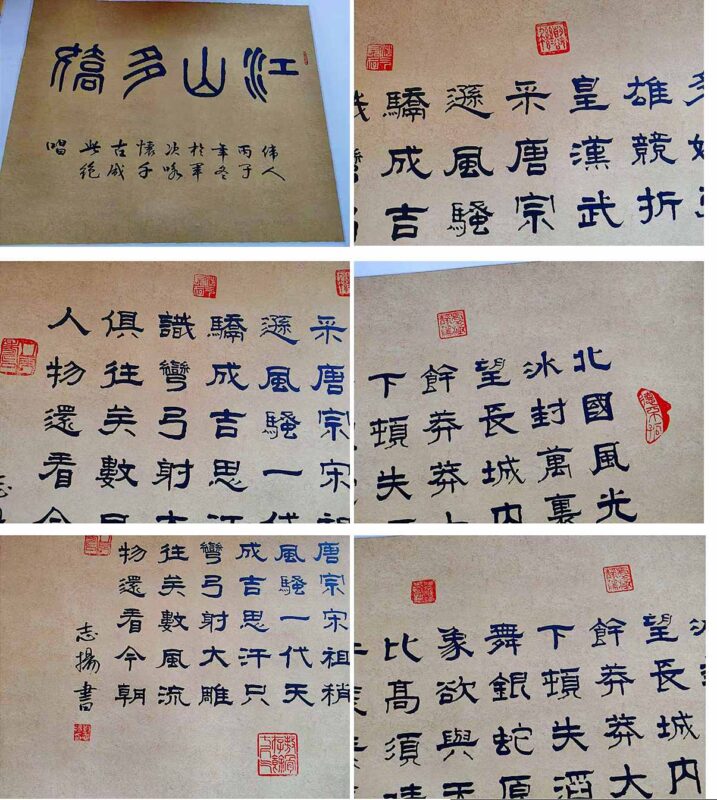 江山多嬌
伟人
丙子
年冬
於軍
次咏
懷千
古成
此絕
唱
多
雄競折
皇漢武
采唐宗
遜風騷
驕成吉
采唐宗宋祖
遜風騷一代
驕成吉思汗
識彎弓射大
俱往矣數風
人物還看今
志
北國風光
冰封萬裏
望長城内
餘莽莽
下頓失
唐宗宋祖稍
風騷一代天
成吉思汗只
彎弓射大雕
往矣數風流
物還看今朝
志揚書
望長城内
餘莽莽大
下頓失滔
舞銀蛇原
象欲與天
比高須晴